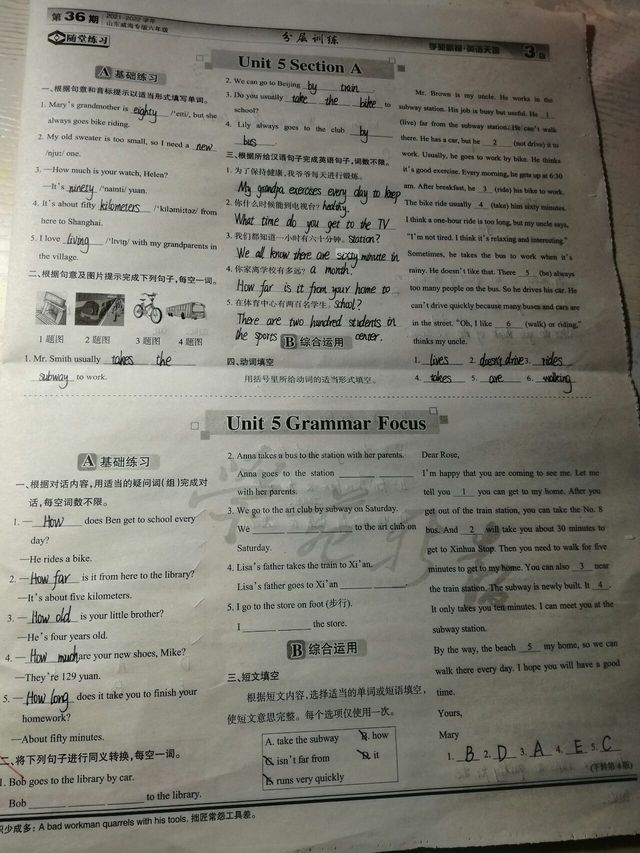 第36期
2021-2022学年
山东威海专版六年级
分层训练
学习周报·英语天地
3版
随堂练习
Unit 5 Section A
A 基础练习
一、根据句意和音标提示以适当形式填写单词。
1. Mary's grandmother is eighty /'eɪti/, but she
always goes bike riding.
2. My old sweater is too small, so I need a new
/njuː/ one.
3. —How much is your watch, Helen?
—It's ninety /'naɪnti/ yuan.
4. It's about fifty kilometers /'kɪləmiːtəz/ from
here to Shanghai.
5. I love living /'lɪvɪŋ/ with my grandparents in
the village.
二、根据句意及图片提示完成下列句子,每空一词。
1题图 2题图 3题图 4题图
1. Mr. Smith usually takes the
subway to work.
2. We can go to Beijing by train.
3. Do you usually take the bike to
school?
4. Lily always goes to the club by
bus.
三、根据所给汉语句子完成英语句子,词数不限。
1. 为了保持健康,我爷爷每天进行锻炼。
My grandpa exercises every day to keep
healthy.
2. 你什么时候能到电视台?
What time do you get to the TV
station?
3. 我们都知道一小时有六十分钟。
We all know there are sixty minute in
a month.
4. 你家离学校有多远?
How far is it from your home to
school?
5. 在体育中心有两百名学生。
There are two hundred students in
the sports center.
B 综合运用
四、动词填空
用括号里所给动词的适当形式填空。
Mr. Brown is my uncle. He works in the
subway station. His job is busy but useful. He 1
(live) far from the subway station. He can't walk
there. He has a car, but he 2 (not drive) it to
work. Usually, he goes to work by bike. He thinks
it's good exercise. Every morning, he gets up at 6:30
am. After breakfast, he 3 (ride) his bike to work.
The bike ride usually 4 (take) him sixty minutes.
I think a one-hour ride is too long, but he always says,
"I'm not tired. I think it's relaxing and interesting."
Sometimes, he takes the bus to work when it's
rainy. He doesn't like that. There 5 (be) always
too many people on the bus. So he drives his car. He
can't drive quickly because many buses and cars are
in the street. "Oh, I like 6 (walk) or riding,"
thinks my uncle.
1. lives 2. doesn't drive 3. rides
4. takes 5. are 6. walking
Unit 5 Grammar Focus
A 基础练习
一、根据对话内容,用适当的疑问词(组)完成对
话,每空词数不限。
1. — How does Ben get to school every
day?
—He rides a bike.
2. — How far is it from here to the library?
—It's about five kilometers.
3. — How old is your little brother?
—He's four years old.
4. — How much are your new shoes, Mike?
—They're 129 yuan.
5. — How long does it take you to finish your
homework?
—About fifty minutes.
二、将下列句子进行同义转换,每空一词。
1. Bob goes to the library by car.
Bob to the library.
2. Anna takes a bus to the station with her parents.
Anna goes to the station
with her parents.
3. We go to the art club by subway on Saturday.
We to the art club on
Saturday.
4. Lisa's father takes the train to Xi'an.
Lisa's father goes to Xi'an .
5. I go to the store on foot (步行).
I the store.
B 综合运用
三、短文填空
根据短文内容,选择适当的单词或短语填空,
使短文意思完整。每个选项仅使用一次。
A. take the subway B. how
C. isn't far from D. it
E. runs very quickly
Dear Rose,
I'm happy that you are coming to see me. Let me
tell you 1 you can get to my home. After you
get out of the train station, you can take the No. 8
bus. And 2 will take you about 30 minutes to
get to Xinhua Stop. Then you need to walk for five
minutes to get to my home. You can also 3 near
the train station. The subway is newly built. It 4 .
It only takes you ten minutes. I can meet you at the
subway station.
By the way, the beach 5 my home, so we can
walk there every day. I hope you will have a good
time.
Yours,
Mary
1. B 2. D 3. A 4. E 5. C
(下转第4版)
积少成多: A bad workman quarrels with his tools. 拙匠常怨工具差。